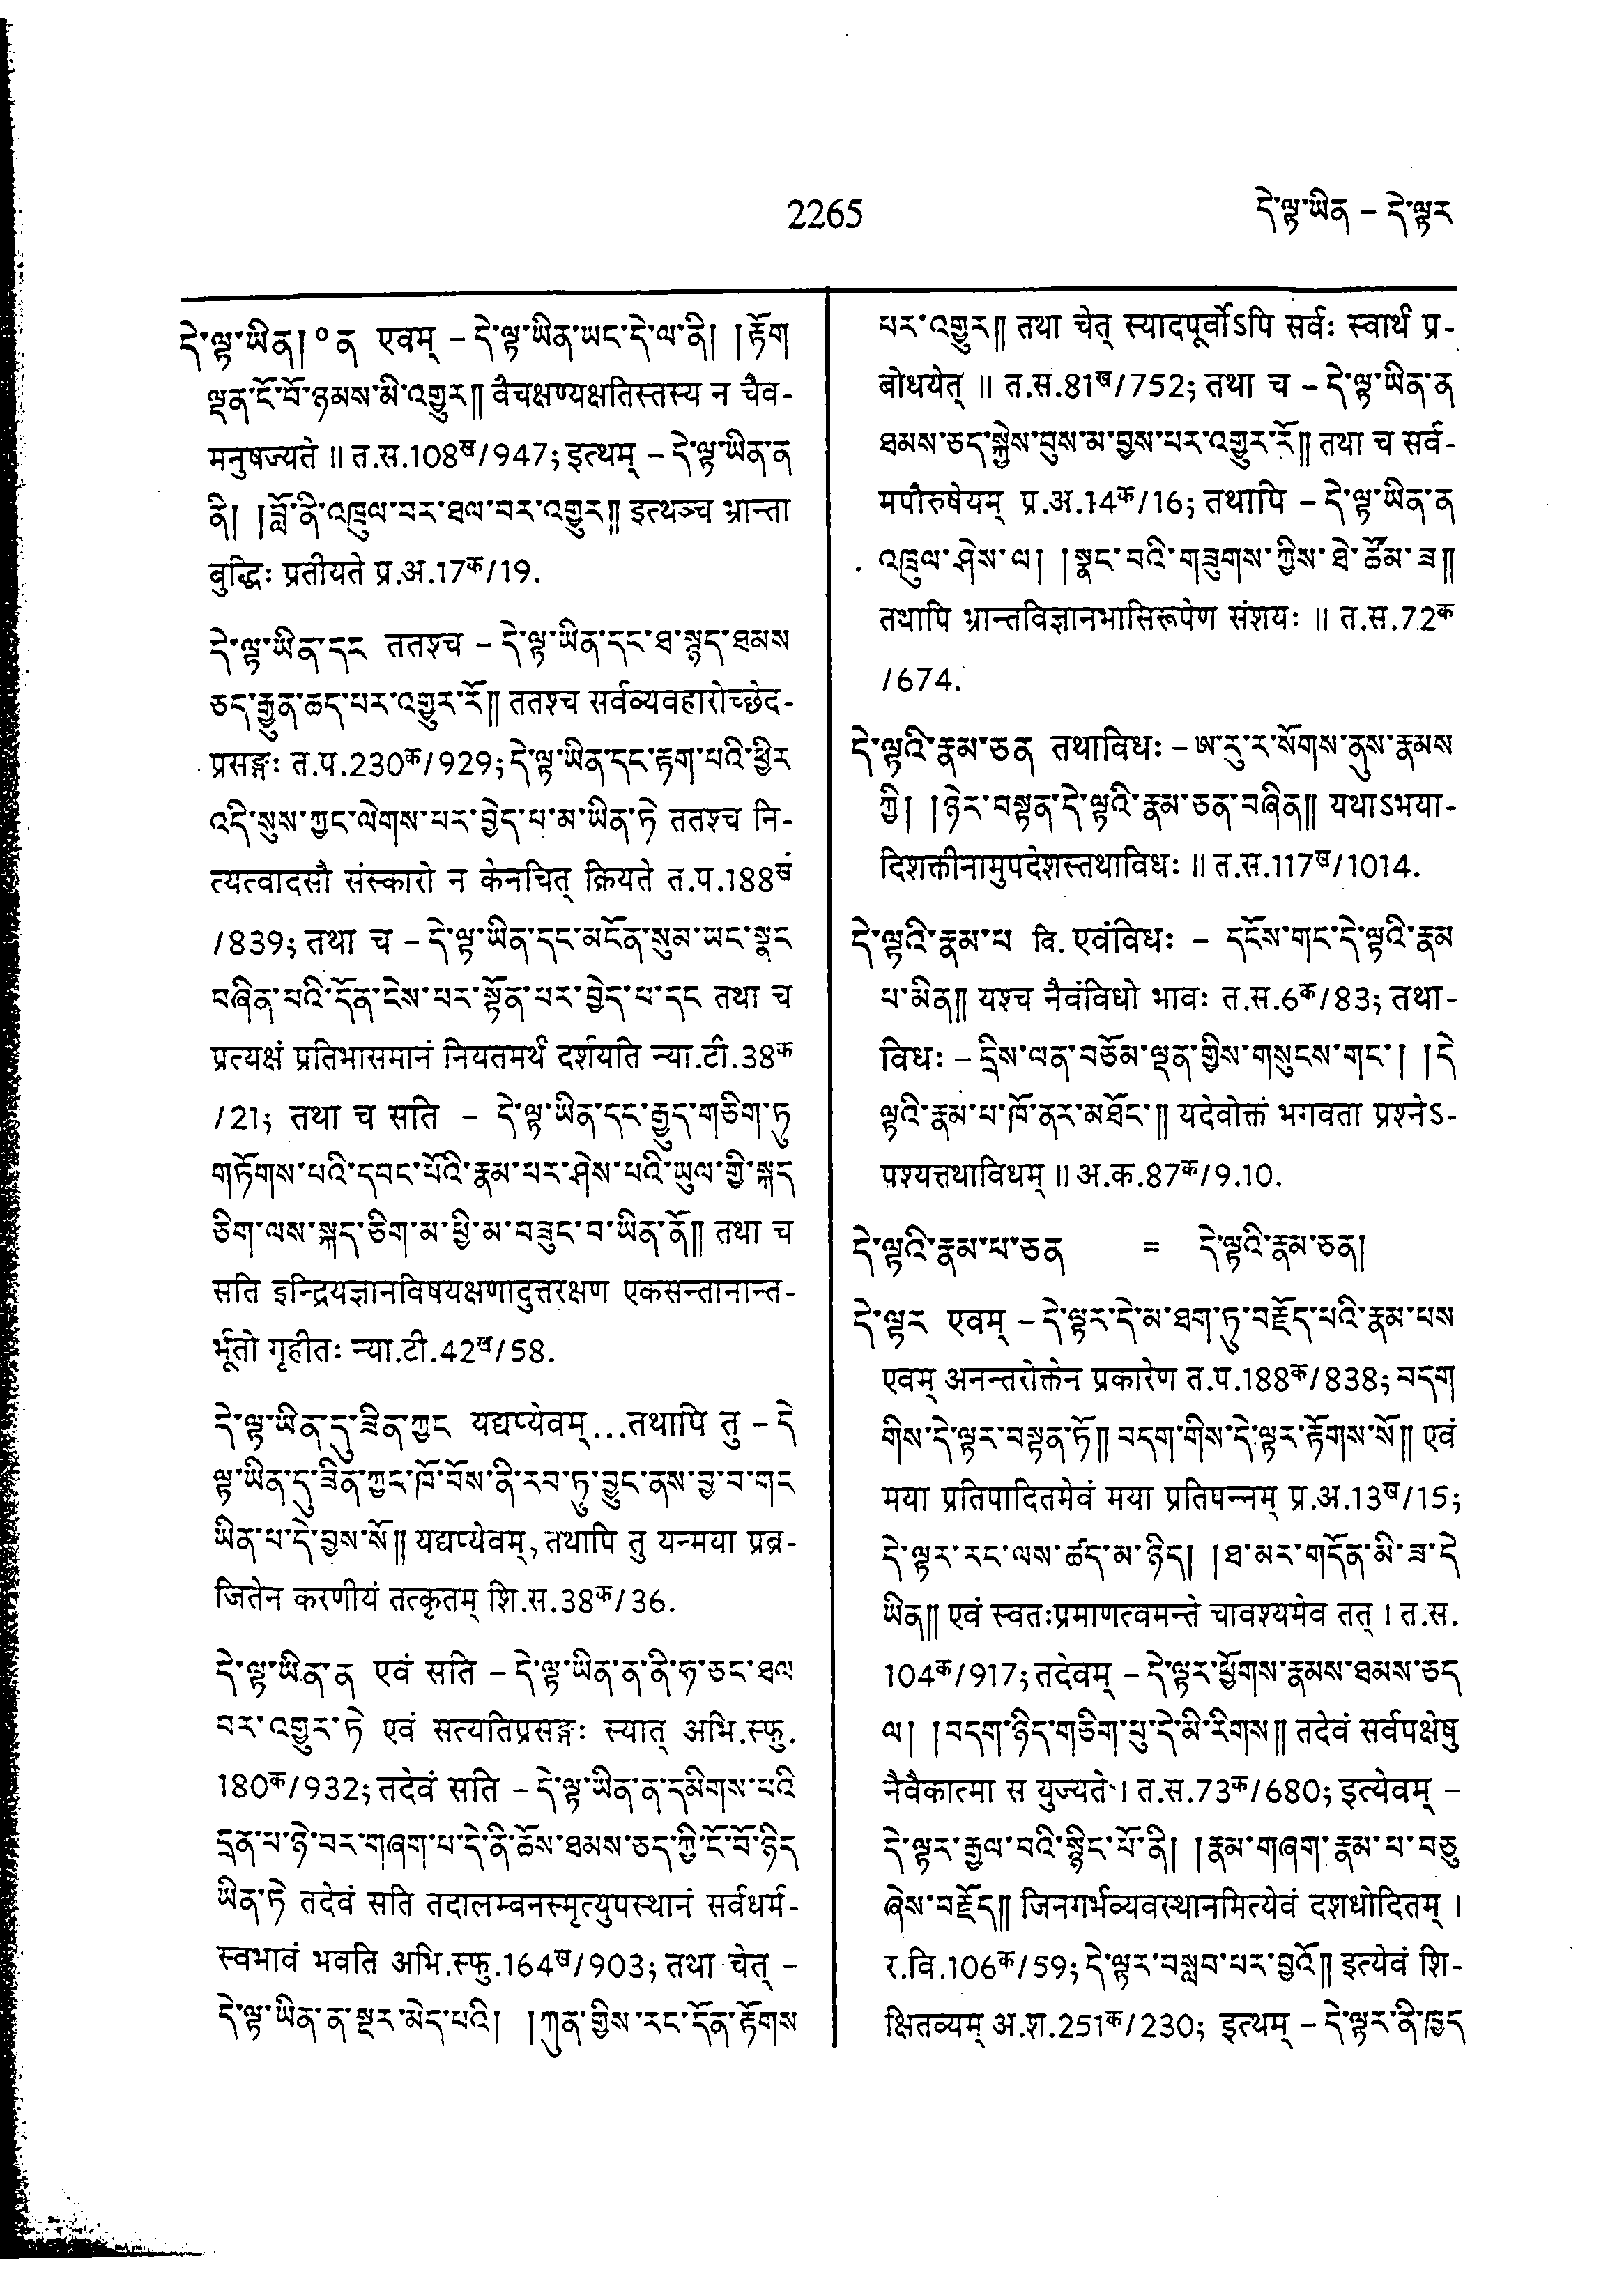 2265
དེ་ལྟ་ཡིན – དེ་ལྟར
དེ་ལྟ་ཡིན། ༠ན एवम् – དེ་ལྟ་ཡིན་ཡང་དེ་ལ་ནི། །རྟོག
ལྡན་ངོ་བོ་ཉམས་མི་འགྱུར༎ वैचक्षण्यक्षतिस्तस्य न चैव-
मनुषज्यते ॥ त.स.108ख/947; इत्थम् – དེ་ལྟ་ཡིན་ན
ནི། །བློ་ནི་འཁྲུལ་བར་ཐལ་བར་འགྱུར༎ इत्थञ्च भ्रान्ता
बुद्धिः प्रतीयते प्र.अ.17क/19.
དེ་ལྟ་ཡིན་དང ततश्च – དེ་ལྟ་ཡིན་དང་ཐ་སྙད་ཐམས
ཅད་རྒྱུན་ཆད་པར་འགྱུར་རོ༎ ततश्च सर्वव्यवहारोच्छेद-
प्रसङ्गः त.प.230क/929; དེ་ལྟ་ཡིན་དང་རྟག་པའི་ཕྱིར
འདི་སུས་ཀྱང་ལེགས་པར་བྱེད་པ་མ་ཡིན་ཏེ ततश्च नि-
त्यत्वादसौ संस्कारो न केनचित् क्रियते त.प.188ख
/839; तथा च – དེ་ལྟ་ཡིན་དང་མངོན་སུམ་ཡང་སྣང
བཞིན་པའི་དོན་ངེས་པར་སྟོན་པར་བྱེད་པ་དང तथा च
प्रत्यक्षं प्रतिभासमानं नियतमर्थं दर्शयति न्या.टी.38क
/21; तथा च सति – དེ་ལྟ་ཡིན་དང་རྒྱུད་གཅིག་ཏུ
གཏོགས་པའི་དབང་པོའི་རྣམ་པར་ཤེས་པའི་ཡུལ་གྱི་སྐད
ཅིག་ལས་སྐད་ཅིག་མ་ཕྱི་མ་བཟུང་བ་ཡིན་ནོ༎ तथा च
सति इन्द्रियज्ञानविषयक्षणादुत्तरक्षण एकसन्तानान्त-
र्भूतो गृहीतः न्या.टी.42ख/58.
དེ་ལྟ་ཡིན་དུ་ཟིན་ཀྱང यद्यप्येवम्...तथापि तु – དེ
ལྟ་ཡིན་དུ་ཟིན་ཀྱང་ཁོ་བོས་ནི་རབ་ཏུ་བྱུང་ནས་བྱ་བ་གང
ཡིན་པ་དེ་བྱས་སོ༎ यद्यप्येवम्, तथापि तु यन्मया प्रव्र-
जितेन करणीयं तत्कृतम् शि.स.38क/36.
དེ་ལྟ་ཡིན་ན एवं सति – དེ་ལྟ་ཡིན་ན་ནི་ཧ་ཅང་ཐལ
བར་འགྱུར་ཏེ एवं सत्यतिप्रसङ्गः स्यात् अभि.स्फु.
180क/932; तदेवं सति – དེ་ལྟ་ཡིན་ན་དམིགས་པའི
དྲན་པ་ཉེ་བར་གཞག་པ་དེ་ནི་ཆོས་ཐམས་ཅད་ཀྱི་ངོ་བོ་ཉིད
ཡིན་ཏེ तदेवं सति तदालम्बनस्मृत्युपस्थानं सर्वधर्म-
स्वभावं भवति अभि.स्फु.164ख/903; तथा चेत् –
དེ་ལྟ་ཡིན་ན་སྔར་མེད་པའི། །ཀུན་གྱིས་རང་དོན་རྟོགས
པར་འགྱུར༎ तथा चेत् स्यादपूर्वोऽपि सर्वः स्वार्थं प्र-
बोधयेत् ॥ त.स.81ख/752; तथा च – དེ་ལྟ་ཡིན་ན
ཐམས་ཅད་སྐྱེས་བུས་མ་བྱས་པར་འགྱུར་རོ༎ तथा च सर्व-
मपौरुषेयम् प्र.अ.14क/16; तथापि – དེ་ལྟ་ཡིན་ན
འཁྲུལ་ཤེས་ལ། །སྣང་བའི་གཟུགས་ཀྱིས་ཐེ་ཚོམ་ཟ༎
तथापि भ्रान्तविज्ञानभासिरूपेण संशयः ॥ त.स.72क
/674.
དེ་ལྟའི་རྣམ་ཅན तथाविधः – ཨ་རུ་ར་སོགས་ནུས་རྣམས
ཀྱི། །ཉེར་བསྟན་དེ་ལྟའི་རྣམ་ཅན་བཞིན༎ यथाऽभया-
दिशक्तीनामुपदेशस्तथाविधः ॥ त.स.117ख/1014.
དེ་ལྟའི་རྣམ་པ वि. एवंविधः – དངོས་གང་དེ་ལྟའི་རྣམ
པ་མིན༎ यश्च नैवंविधो भावः त.स.6क/83; तथा-
विधः – དྲིས་ལན་བཅོམ་ལྡན་གྱིས་གསུངས་གང་། །དེ
ལྟའི་རྣམ་པ་ཁོ་ནར་མཐོང་༎ यदेवोक्तं भगवता प्रश्नेऽ-
पश्यत्तथाविधम् ॥ अ.क.87क/9.10.
དེ་ལྟའི་རྣམ་པ་ཅན = དེ་ལྟའི་རྣམ་ཅན།
དེ་ལྟར एवम् – དེ་ལྟར་དེ་མ་ཐག་ཏུ་བརྗོད་པའི་རྣམ་པས
एवम् अनन्तरोक्तेन प्रकारेण त.प.188क/838; བདག
གིས་དེ་ལྟར་བསྟན་ཏོ༎ བདག་གིས་དེ་ལྟར་རྟོགས་སོ༎ एवं
मया प्रतिपादितमेवं मया प्रतिपन्नम् प्र.अ.13ख/15;
དེ་ལྟར་རང་ལས་ཚད་མ་ཉིད། །ཐ་མར་གདོན་མི་ཟ་དེ
ཡིན༎ एवं स्वतःप्रमाणत्वमन्ते चावश्यमेव तत् । त.स.
104क/917; तदेवम् – དེ་ལྟར་ཕྱོགས་རྣམས་ཐམས་ཅད
ལ། །བདག་ཉིད་གཅིག་པུ་དེ་མི་རིགས༎ तदेवं सर्वपक्षेषु
नैवैकात्मा स युज्यते । त.स.73क/680; इत्येवम् –
དེ་ལྟར་རྒྱལ་བའི་སྙིང་པོ་ནི། །རྣམ་གཞག་རྣམ་པ་བཅུ
ཞེས་བརྗོད༎ जिनगर्भव्यवस्थानमित्येवं दशधोदितम् ।
र.वि.106क/59; དེ་ལྟར་བསླབ་པར་བྱའོ༎ इत्येवं शि-
क्षितव्यम् अ.श.251क/230; इत्थम् – དེ་ལྟར་ནི་ཁྱད